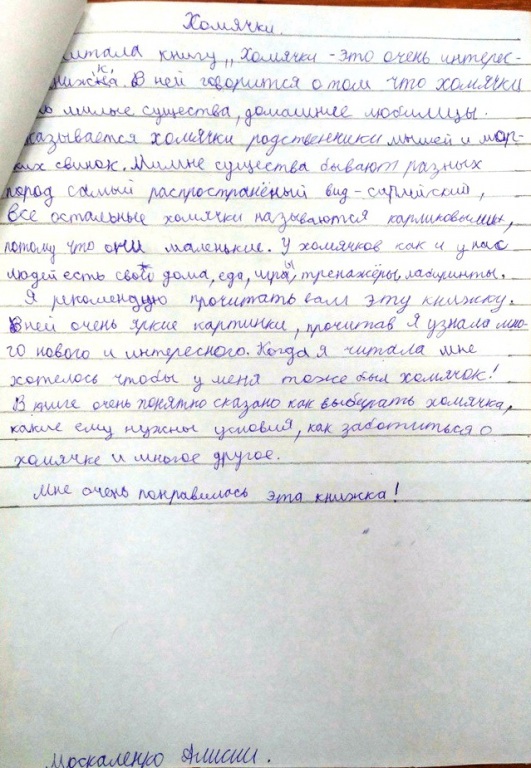 Хомячки.
читала книгу „Хомячки - это очень интерес-
книжка. В ней говорится о том что хомячки
милые существа, домашнее любимцы.
казывается хомячки родственники мышей и мор-
ких свинок. Милые существа бывают разных
пород самый распространёный вид - сирийский,
все остальные хомячки называются карликовыми,
потому что они маленькие. У хомячков как и у нас
людей есть свои дома, еда, игры, тренажёры, лабиринты.
Я рекомендую прочитать вам эту книжку.
В ней очень яркие картинки, прочитав я узнала мно-
го нового и интересного. Когда я читала мне
хотелось чтобы у меня тоже был хомячок!
В книге очень понятно сказано как выбирать хомячка,
какие ему нужны условия, как заботиться о
хомячке и многое другое.
Мне очень понравилась эта книжка!
Москаленко Алисии.